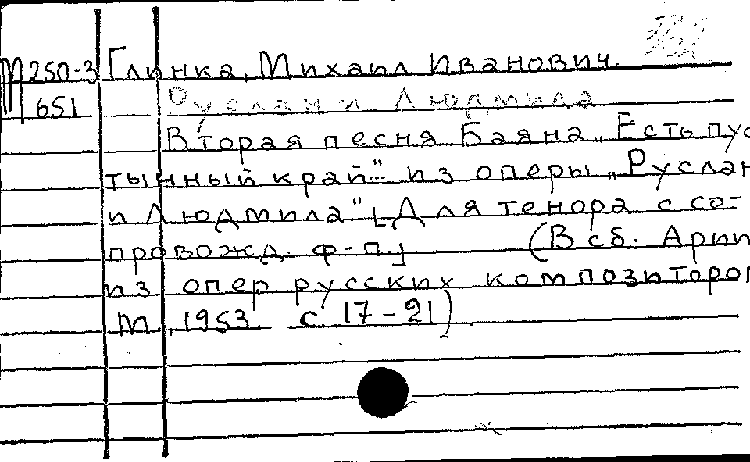 М250-3 Глинка, Михаил Иванович.
651 Руслан и Людмила
Вторая песня Баяна „Есть пус
тынный край" из оперы „Руслан
и Людмила" [Для тенора с со-
провожд. ф-п.] (В сб. Арии
из опер русских композиторов
М, 1953 с 17-21)